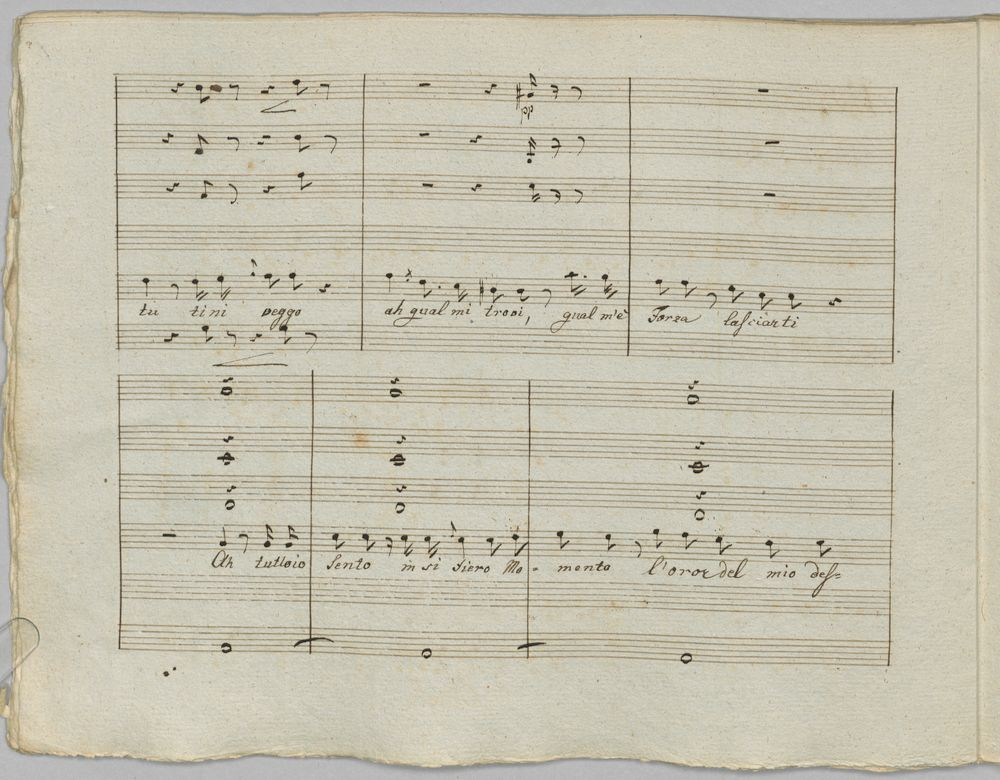 tu tini peggo ah qual mi trovi, qual m'è Forza lasciarti
Ah tuttoio Sento in si fiero Mo- mento l'oror del mio des=